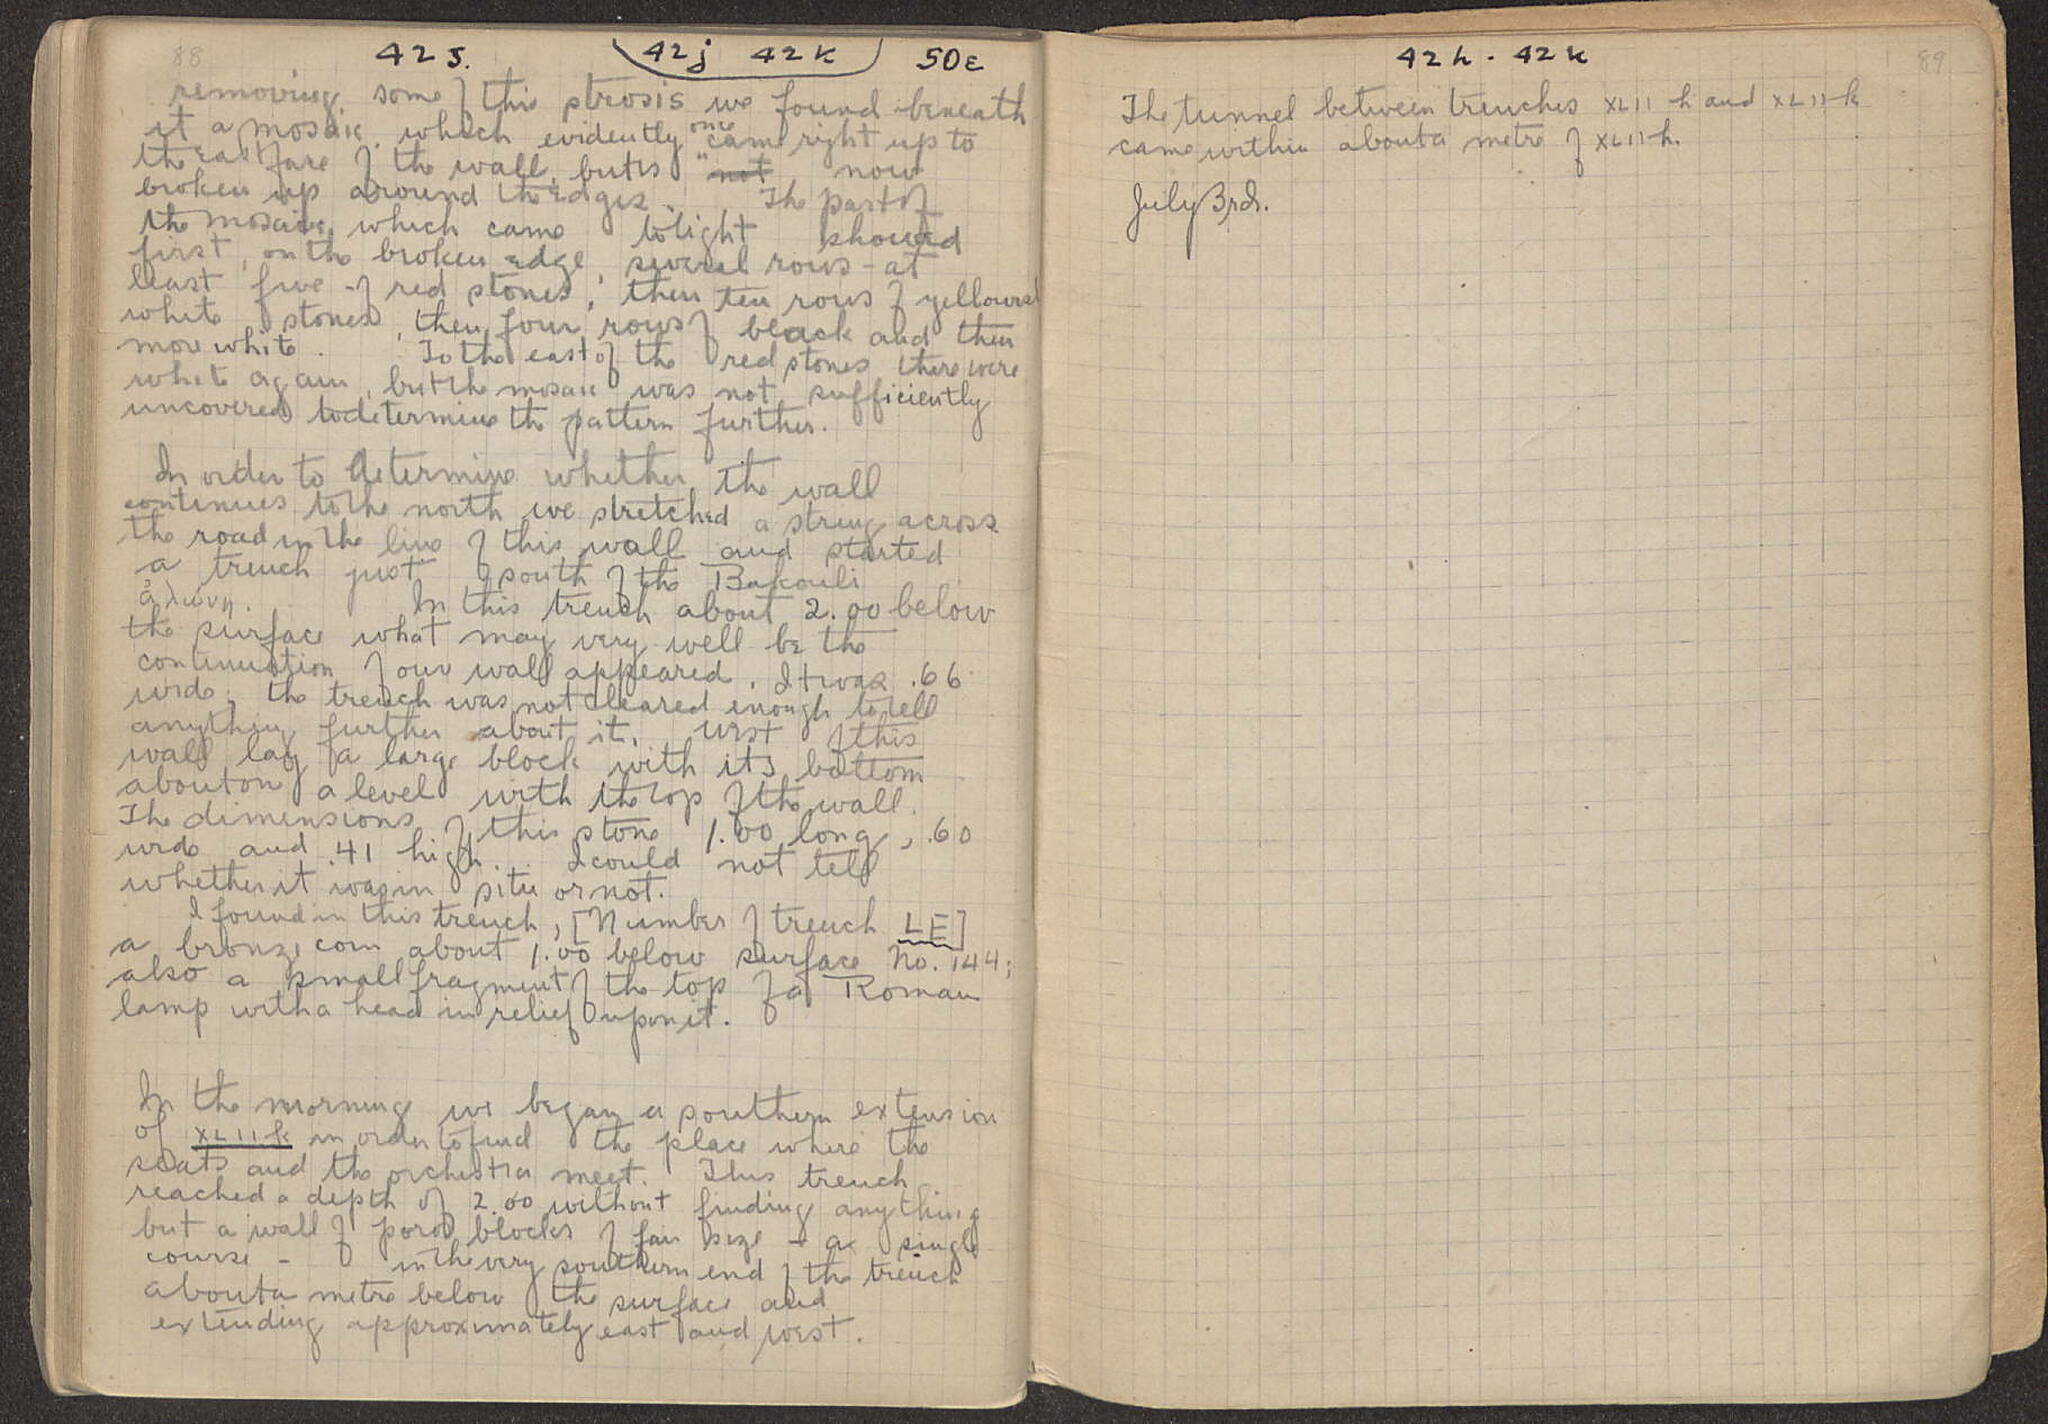 88
42J. 42j 42k 50ε
removing some of this strosis we found beneath
it a mosaic, which evidently once came right up to
the east face of the wall, but is not now
broken up around the edges. The part of
the mosaic which came to light showed
first, on the broken edge, several rows - at
least five - of red stones; then ten rows of yellowish
white stones, then four rows of black and then
more white. To the east of the red stones there were
white again, but the mosaic was not sufficiently
uncovered to determine the pattern further.
In order to determine whether the wall
continues to the north we stretched a string across
the road in the line of this wall and started
a trench just south of the Bakouli
ἁλώνη. In this trench about 2.00 below
the surface what may very well be the
continuation of our wall appeared. It was .66
wide; the trench was not cleared enough to tell
anything further about it. West of this
wall lay a large block with its bottom
about on a level with the top of the wall.
The dimensions of this stone 1.00 long, .60
wide and .41 high. I could not tell
whether it was in situ or not.
I found in this trench, [Number of trench LE]
a bronze coin about 1.00 below surface No. 144;
also a small fragment of the top of a Roman
lamp with a head in relief upon it.
In the morning we began a southern extension
of XLII k in order to find the place where the
seats and the orchestra meet. This trench
reached a depth of 2.00 without finding anything
but a wall of poros blocks of fair size - a single
course - in the very southern end of the trench
about a metre below the surface and
extending approximately east and west.
89
42h - 42k
The tunnel between trenches XLII h and XLII k
came within about a metre of XLII h.
July 3rd.